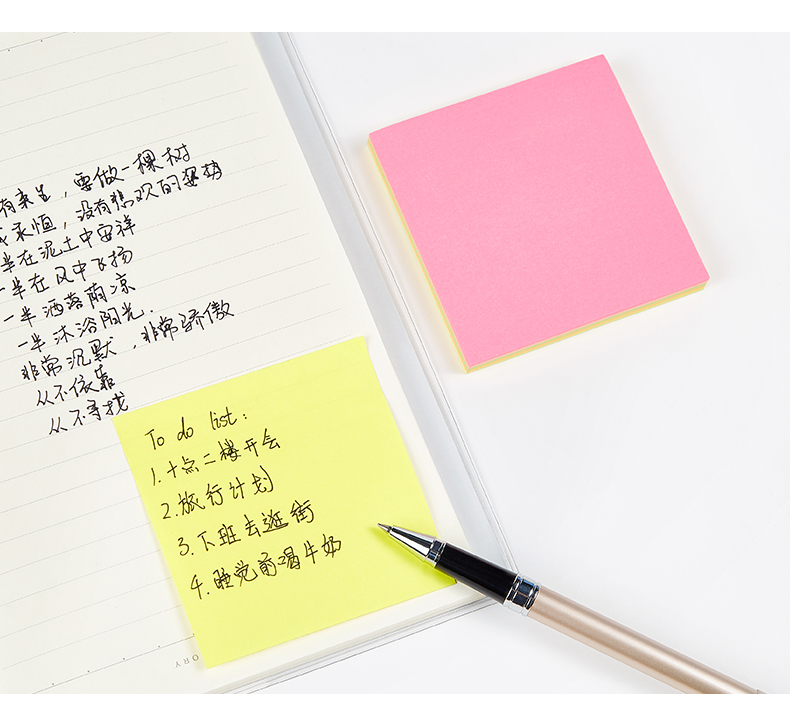 有来生，要做一棵树
永恒，没有悲欢的姿势
半在泥土中安详
一半在风中飞扬
一半洒落荫凉
一半沐浴阳光.
非常沉默，非常骄傲
从不依靠
从不寻找
To do list:
1.十点二楼开会
2.旅行计划
3.下班去逛街
4.睡觉前喝牛奶
ORY